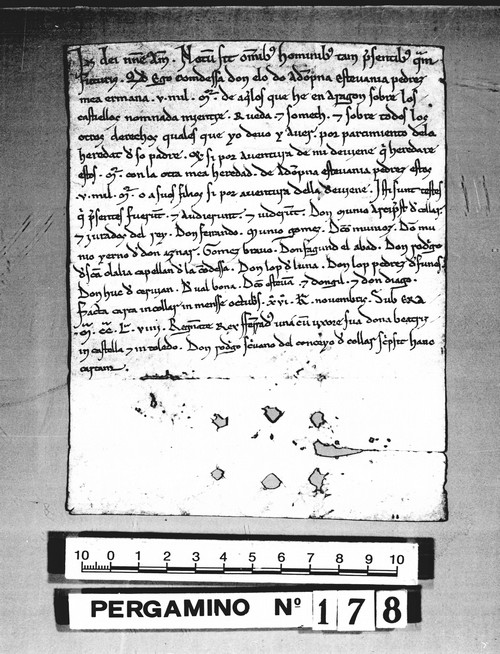 dei nñe Am̃. Notũ sit omĩbꝰ hominibꝰ tam p̃sentibꝰ q̃m
futuris. Qd Ego comdessa don elo do a dompna estevania pedrez
mea ermana .v. mil. de aq̃los que he en aragon sobre los
castellos nomnada 7 someth. 7 sobre todos los
otros derechos quales que yo devo 7 aver. por pariamiento dela
heredat d so padre. si por aventura de mi deviene q̃ herdare
estos con la otra mea heredad. de dompna estevania pedrez estos
.v. mil. o a sues fijos si por aventura della deviene. Isti sunt testes
q̃ p̃sentes fuerũt. 7 audierunt. 7 viderũt. Don munio d collar.
7 jurados del rey. Don ferrando. munio gomez. Dom̃ munoz. Dom̃ mu
nio yerno d don aznar. Gomez bravo. Don el abad. Don rod̃go
d sc̃a olalia capellan d la cõdessa. Don lop d luna. Don lop pedrez d
Don hue d R. val bona. Dom̃ esteva. 7 7 don diago.
Facta carta in collar in mensse octubs̃. .xvi. K. novembre. Sub era
.m̃. cc̃. L. viiii. Regnãte Rex una cũ uxore sua dona beatriz
in castella 7 in toledo. Don rod̃go sc̃vano del conceyo d collar sc̃psit hanc
cartam.
10 0 1 2 3 4 5 6 7 8 9 10
PERGAMINO Nº 178